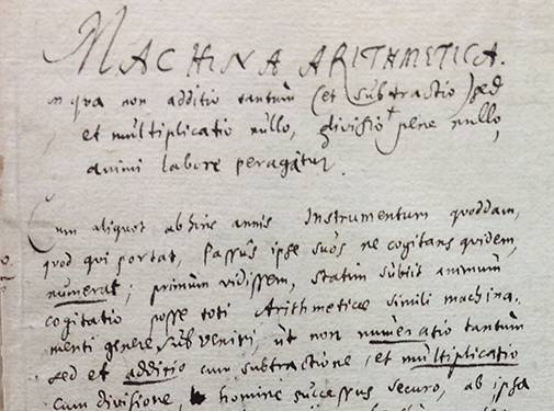 MACHINA ARITHMETICA.
in qua non additio tantùm (et subtractio) sed
et multiplicatio nullo, divisio pene nullo,
animi labore peragatur.
Cum aliquot abhinc annis Instrumentum quoddam,
quod qui portat, passus ipse suos ne cogitans quidem,
numerat; primum vidissem, statim subiit animum
cogitatio posse toti Arithmeticae simili machina-
menti genere subveniri, ut non numeratio tantùm
sed et additio cum subtractione, et multiplicatio
cum divisione, homine successus securo, ab ipsa